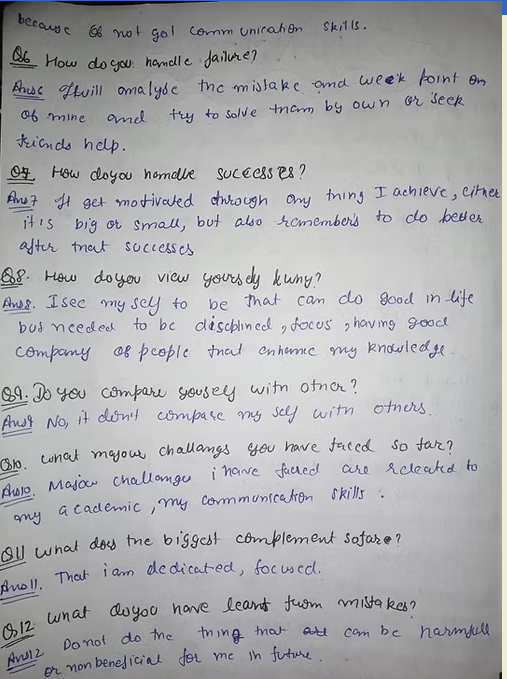 because of not got communication skills.
Q6 How do you handle failure?
Ans6 I will analyse the mistake and week point on
of mine and try to solve them by own or seek
friends help.
Q7. How do you handle successes?
Ans7 It get motivated through any thing I achieve, either
it is big or small, but also remembers to do better
after that successes
Q8. How do you view yoursely & why?
Ans8. I see my self to be that can do good in life
but needed to be disciplined, focus, having good
company of people that enhance my knowledge.
Q9. Do you compare youself with other?
Ans9 No, it don't compare my self with others.
Q10. what majour challangs you have faced so far?
Ans10. Major challange i have facred are releated to
my academic, my communication skills.
Q11 what does the biggest complement sofare?
Ans11. That i am dedicated, focused.
Q12. what do you have learnt from mistakes?
Ans12 Do not do the thing that can be harmfull
or nonbeneficial for me in future.